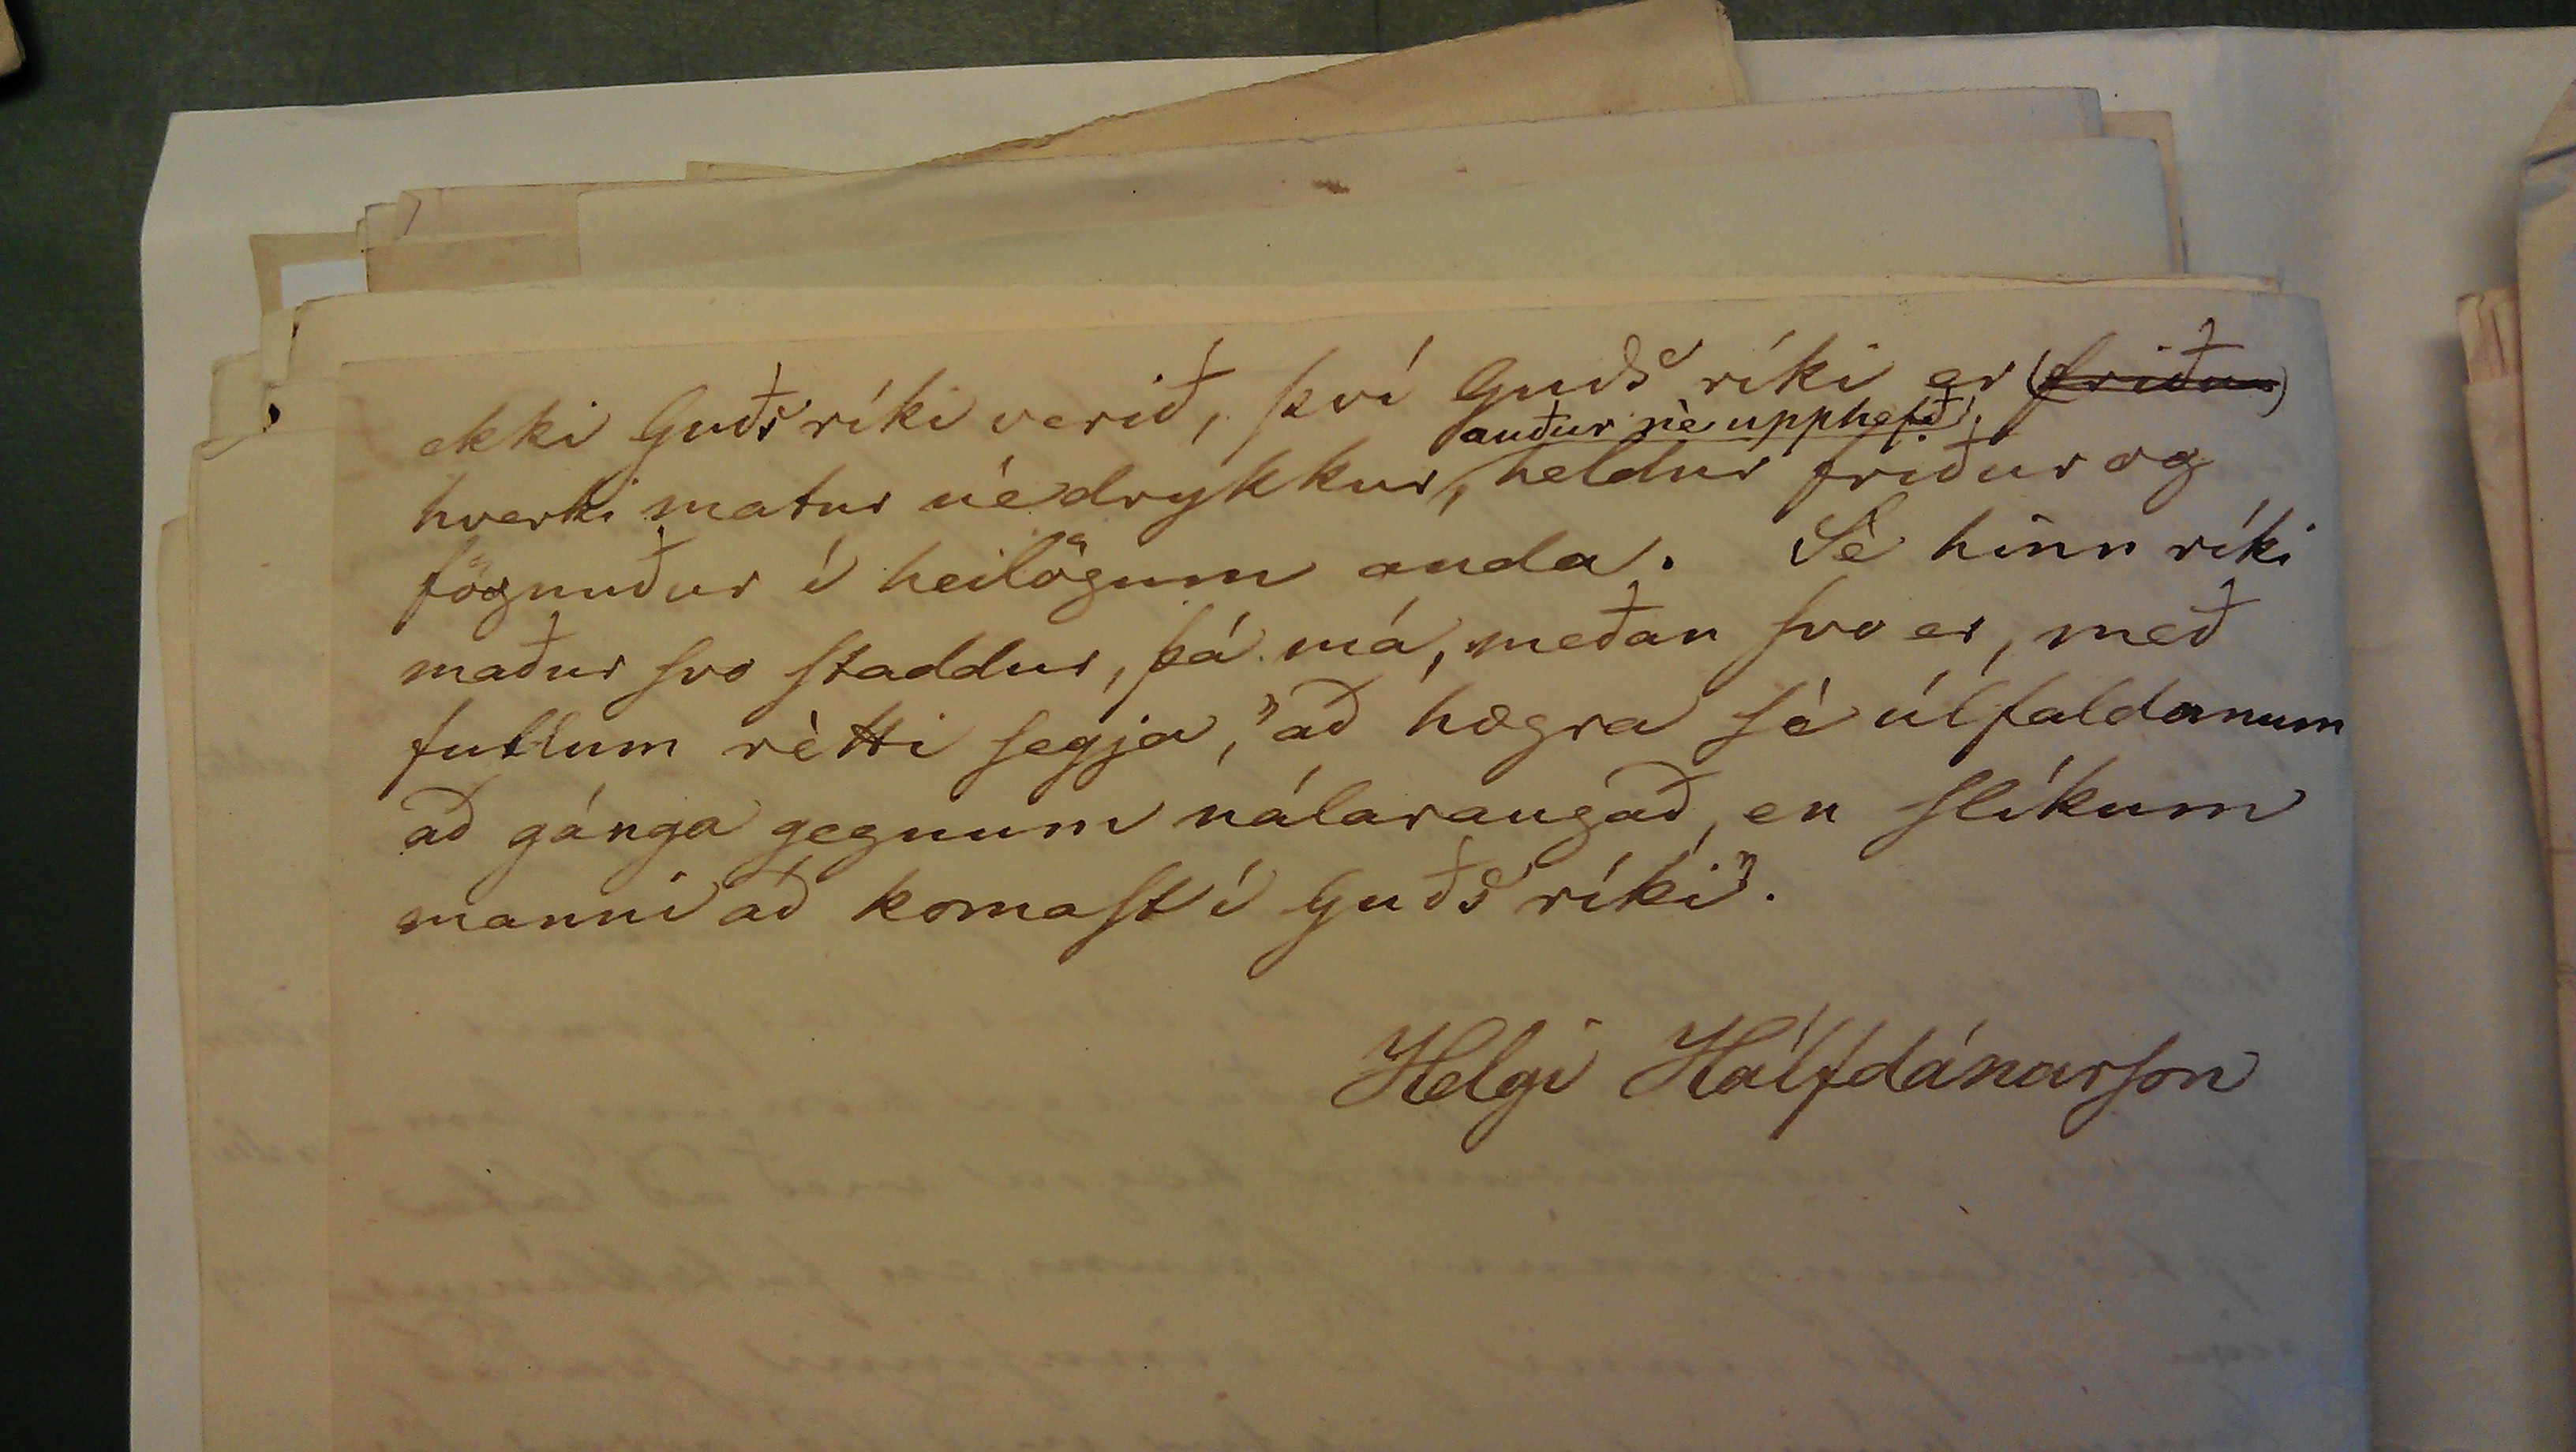 ekki Guðs ríki verið, því Guðs ríki er (friður)
auður nè upphefð,
hverki matur nè drykkur, heldur friður og
fögnuður í heilögum anda. Sè hinn ríki
maður svo staddur, þá má, meðan svo er, með
fullum rètti segja, "að hægra sè úlfaldanum
að gánga gegnum nálaraugað, en slíkum
manni að komast í Guðs ríki".
Helgi Hálfdánarson